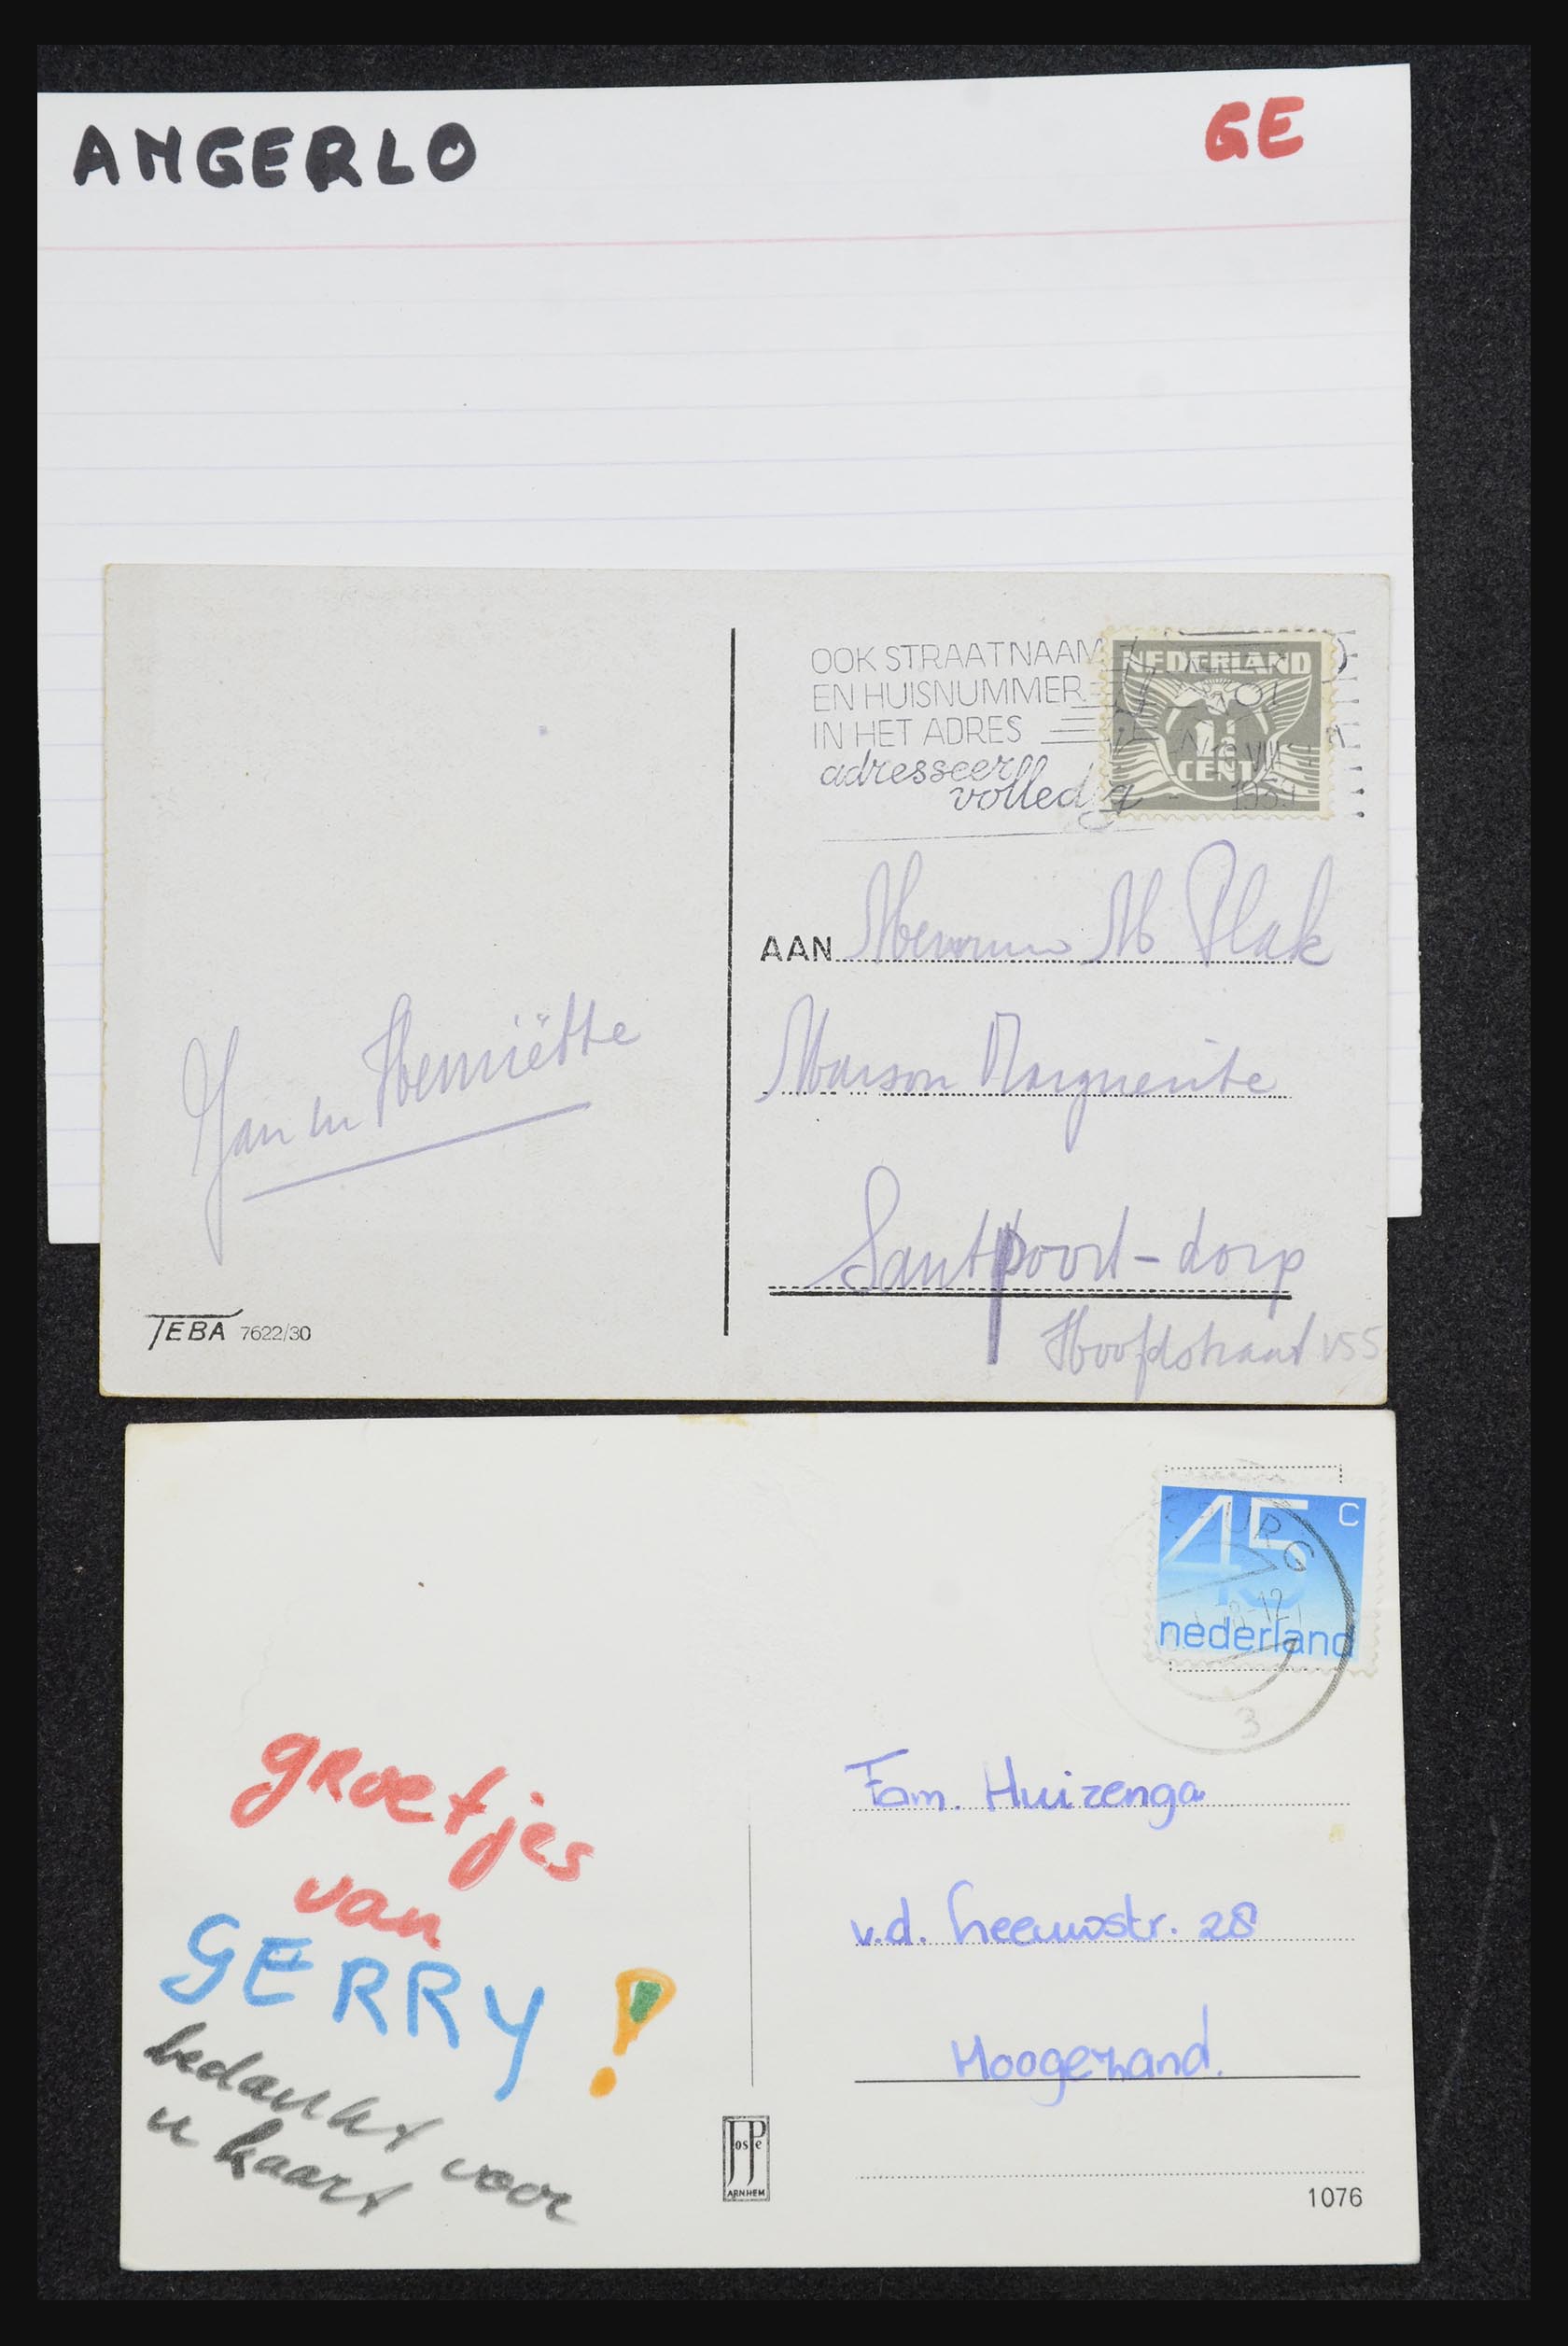 ANGERLO
GE
OOK STRAATNAAM
EN HUISNUMMER
IN HET ADRES
adresseer
volledig
NEDERLAND
1½
CENT
VIII
1939
AAN M Plak
Maison Marguerite
Santpoort-dorp
Hoofdstraat 155
Jan en Henriëtte
TEBA 7622/30
45 c
nederland
3
Fam. Huizenga
v.d. Leeuwstr. 28
Hoogezand.
groetjes
van
GERRY!
bedankt voor
u kaart
JosPe
ARNHEM
1076